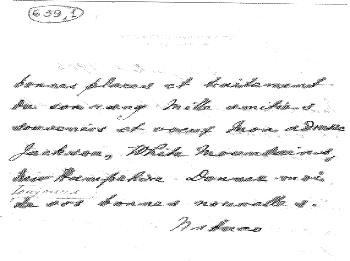 639,1
bonnes places et traitement
du son rang Mille amitiés
souvenirs et voeux Mon adresse
Jackson, White Mountains,
New Hampshire Donnez moi
toujours
de vos bonnes nouvelles.